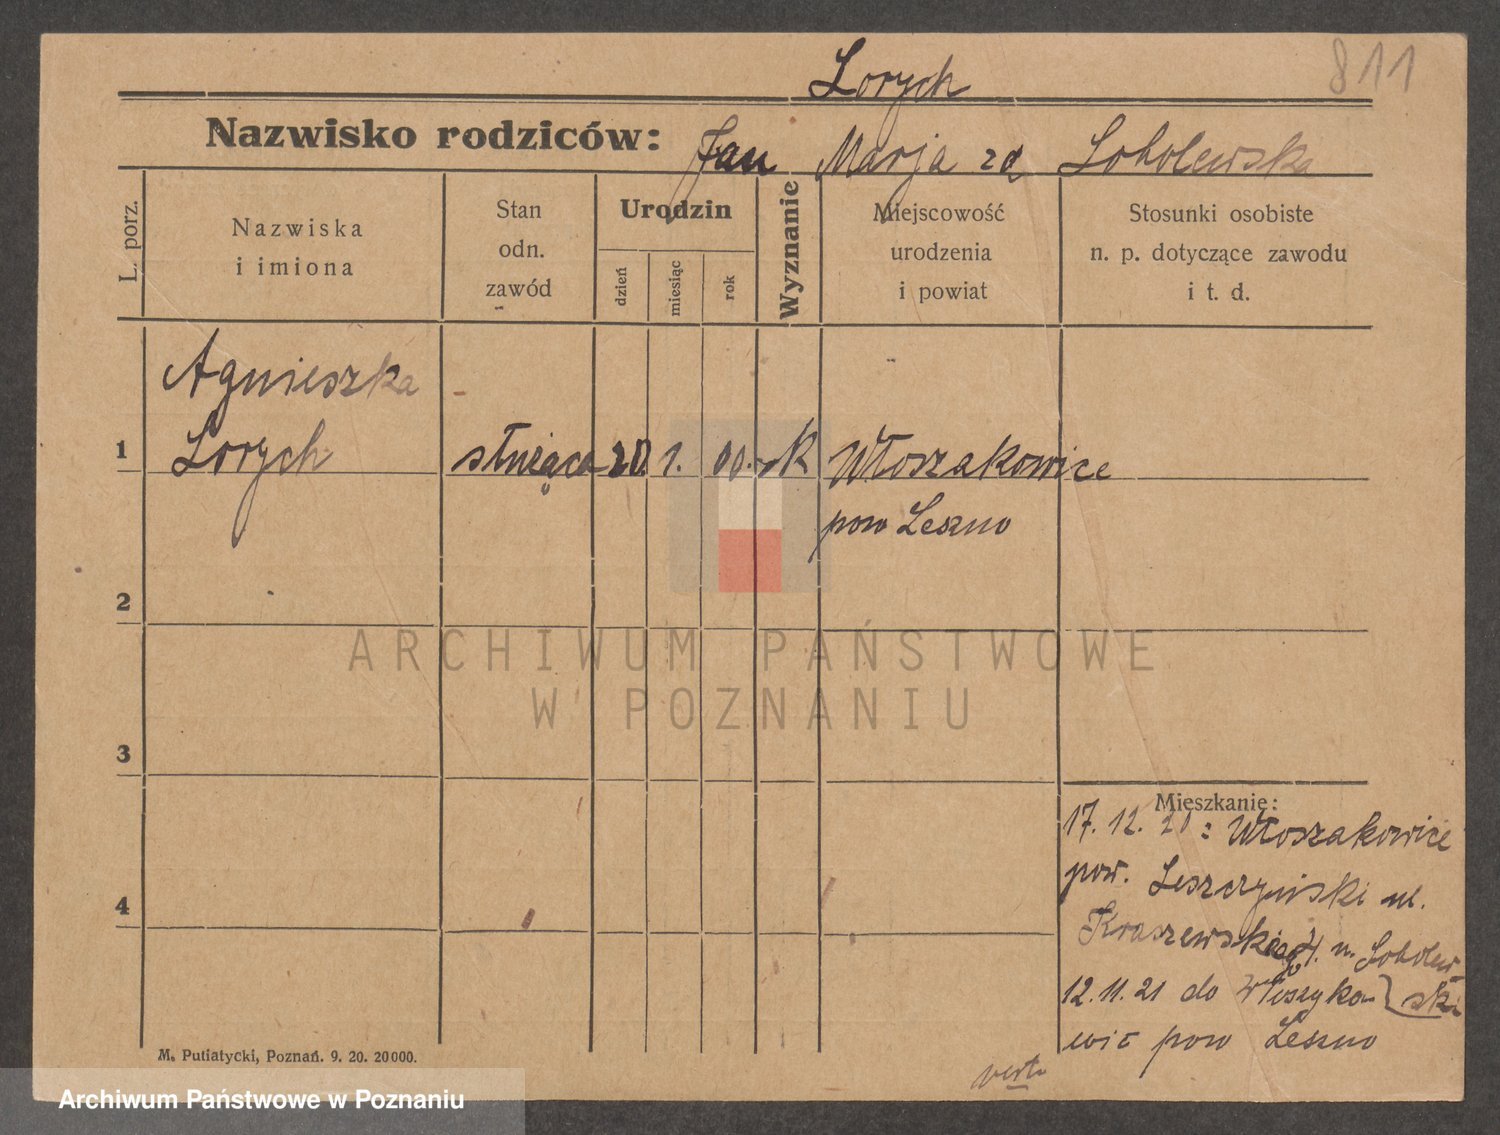 Lorych
811
Nazwisko rodziców: Jan Marja zd Sobolewska
L. porz.
Nazwiska
i imiona
Stan
odn.
zawód
Urodzin
dzień
miesiąc
rok
Wyznanie
Miejscowość
urodzenia
i powiat
Stosunki osobiste
n. p. dotyczące zawodu
i t. d.
Agnieszka
1 Lorych służąca 20. 1. 00. rk Włoszakowice
pow Leszno
2
ARCHIWUM PAŃSTWOWE
W POZNANIU
3
Mieszkanie:
17. 12. 20: Włoszakowice
pow. Leszczyński ul.
4
Kraszewskiego u. Sobolew-
ski
12.11.21 do Włoszyko-
wic pow Leszno
verte
M. Putiatycki, Poznań. 9. 20. 20000.
Archiwum Państwowe w Poznaniu